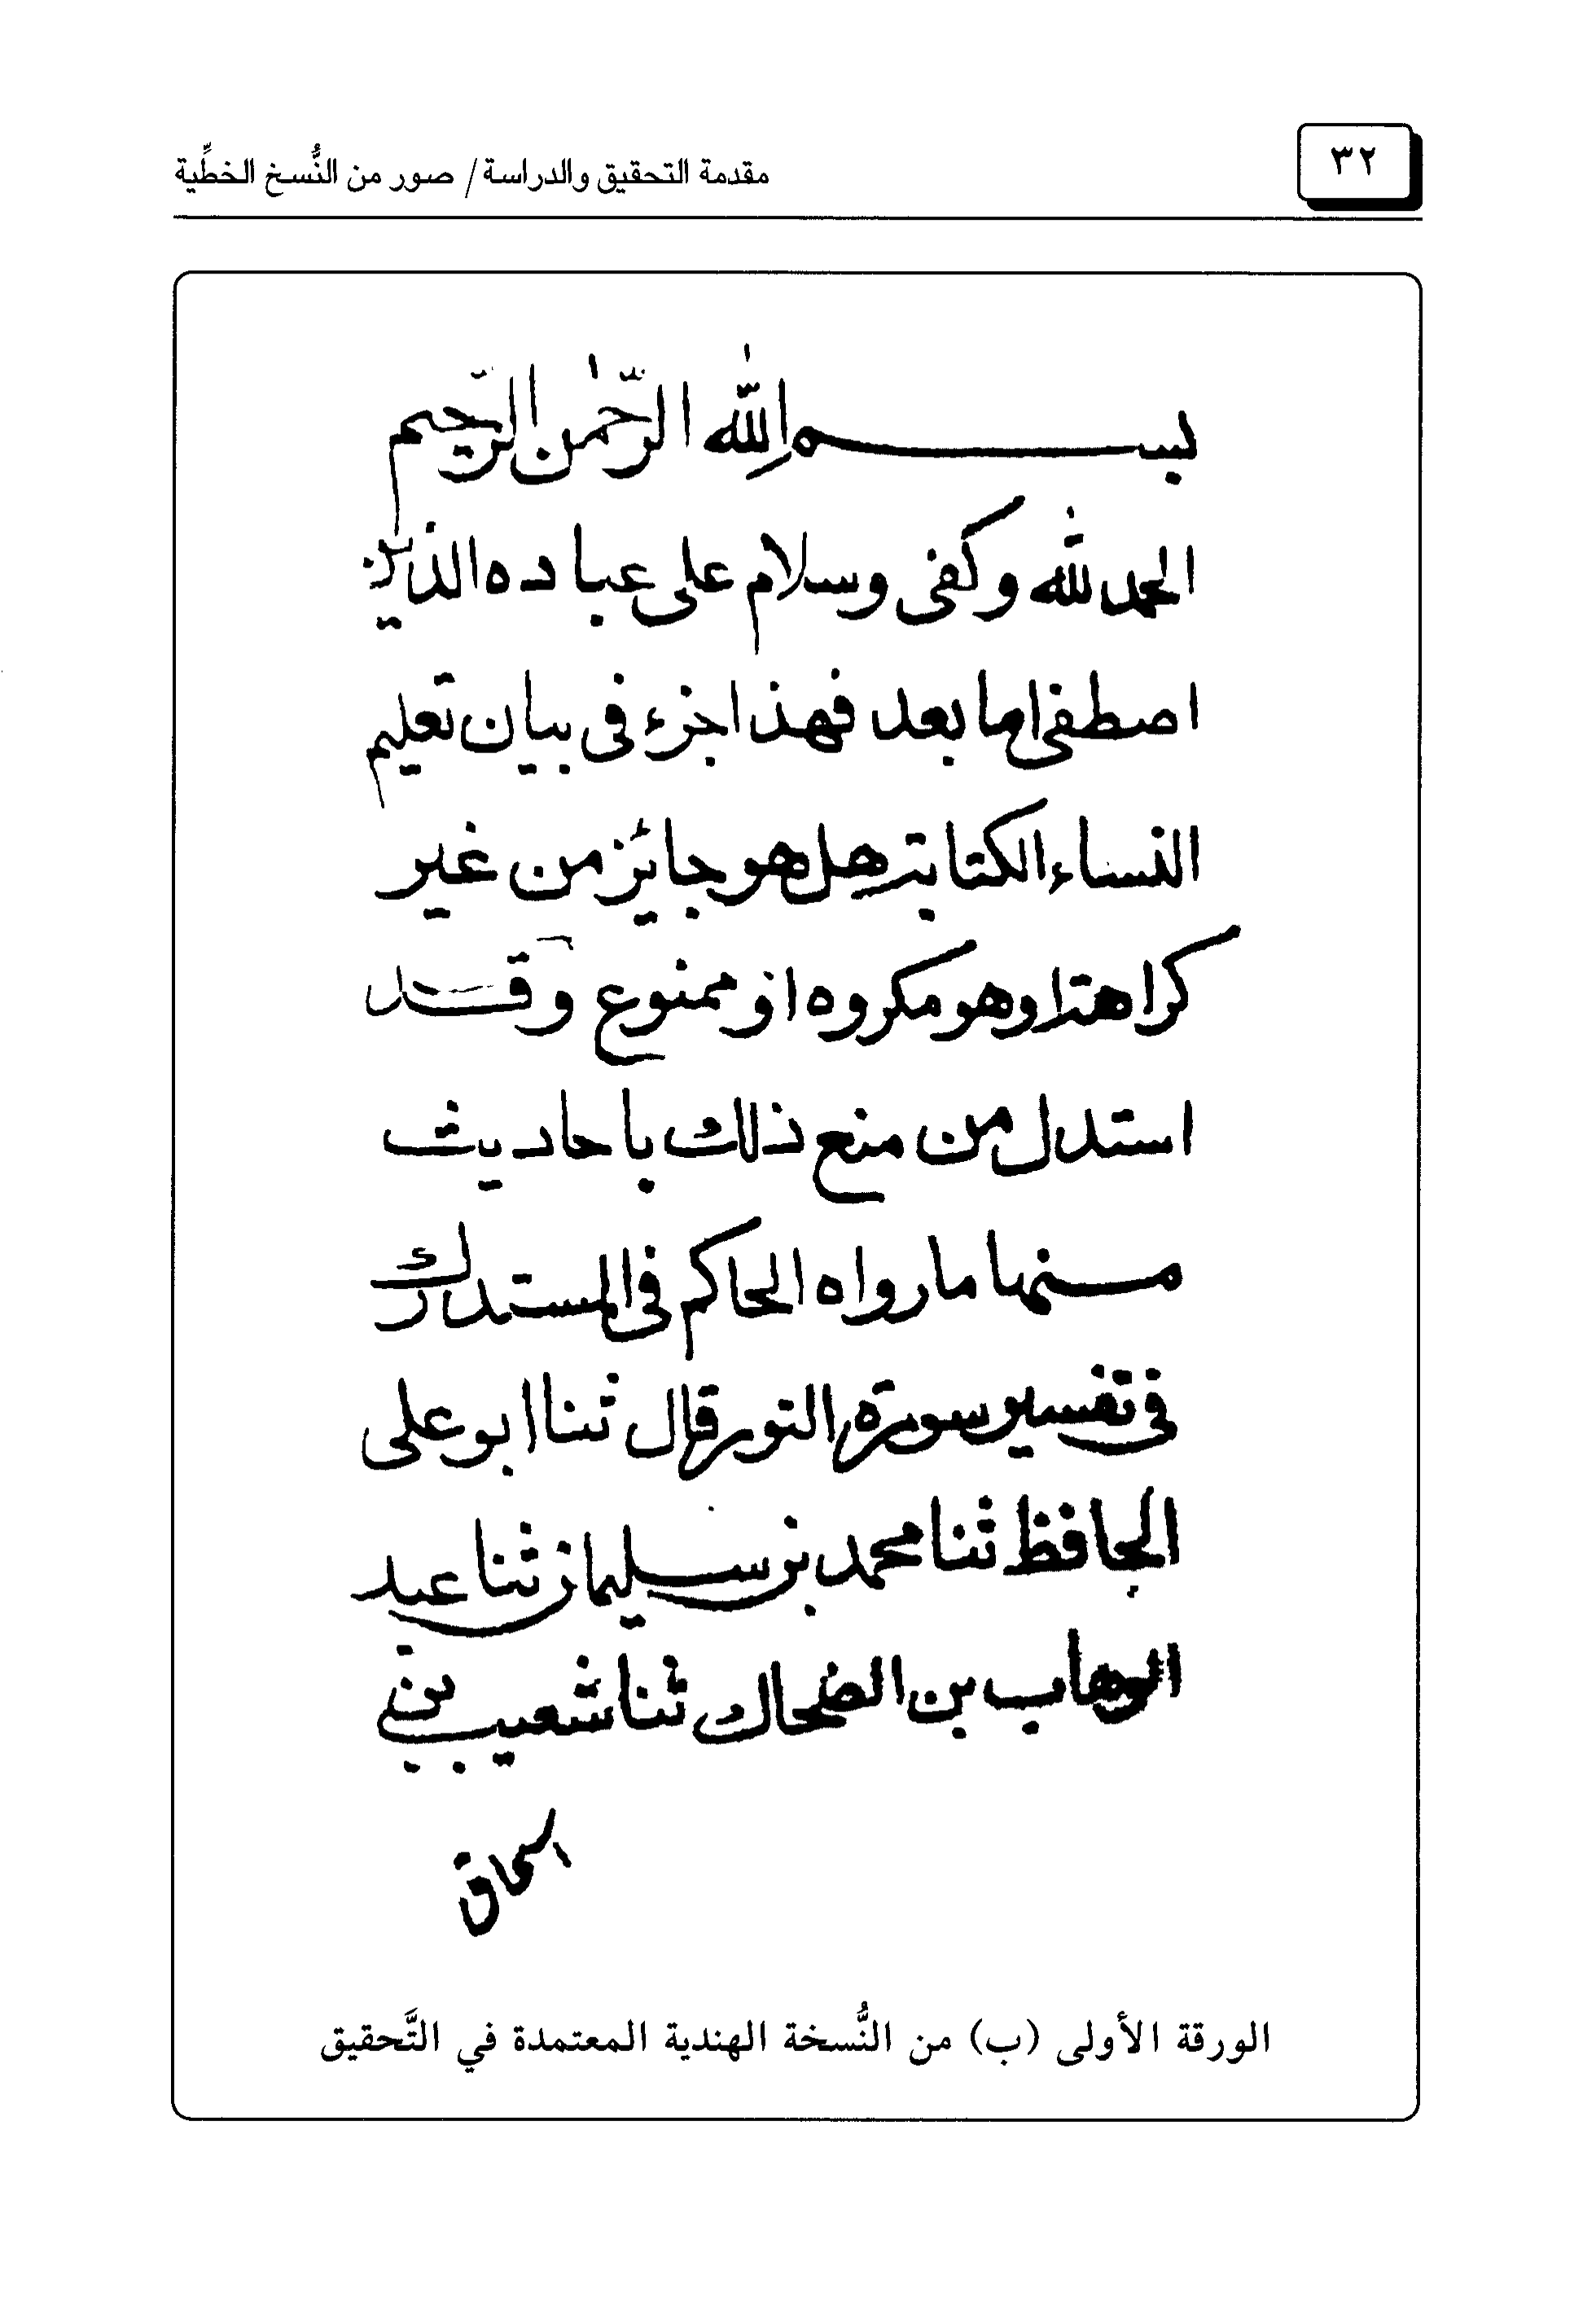 ٣٢
مقدمة التحقيق والدراسة / صور من النُّسخ الخطِّية
بسم الله الرّحمٰن الرّحيم
الحمد لله وكفى وسلام على عباده الذين
اصطفى اما بعد فهذا جزء فى بيان تعليم
النساء الكتابة هل هو جائز من غير
كراهة او هو مكروه او ممنوع وقد
استدل من منع ذلك باحاديث
منها ما رواه الحاكم فى المستدرك
فى تفسير سورة النور قال ثنا ابو على
الحافظ ثنا محمد بن سليمان ثنا عبد
الوهاب بن الضحاك ثنا شعيب بن
اسحاق
الورقة الأولى (ب) من النُّسخة الهندية المعتمدة في التَّحقيق